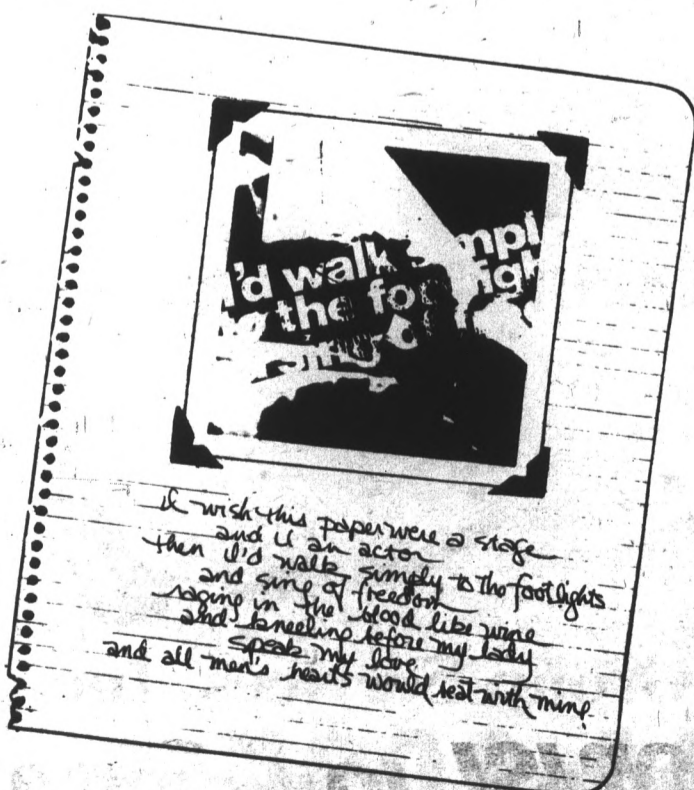 I'd walk simpl
the foo ligh
sing of f
I wish this paper were a stage
and I an actor
then I'd walk simply to the footlights
and sing of freedom
raging in the blood like wine
and kneeling before my lady
speak my love
and all men's hearts would beat with mine